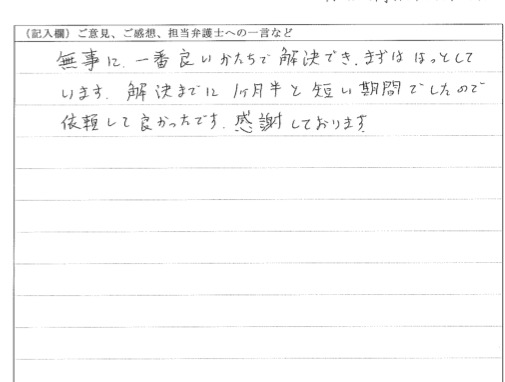 (記入欄)ご意見、ご感想、担当弁護士への一言など
無事に、一番良いかたちで解決でき、まずは ほっとして
います。解決までに 1ヶ月半と短い期間でしたので
依頼して良かったです。感謝しております